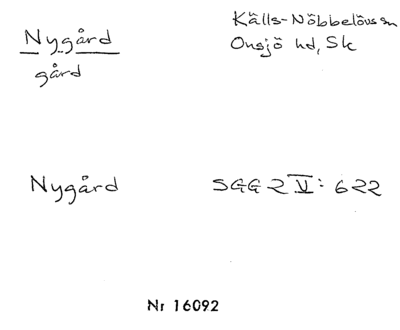 Nygård
gård
Källs-Nöbbelövs sn
Onsjö hd, Sk
Nygård
SGG 2 V: 622
Nr 16092